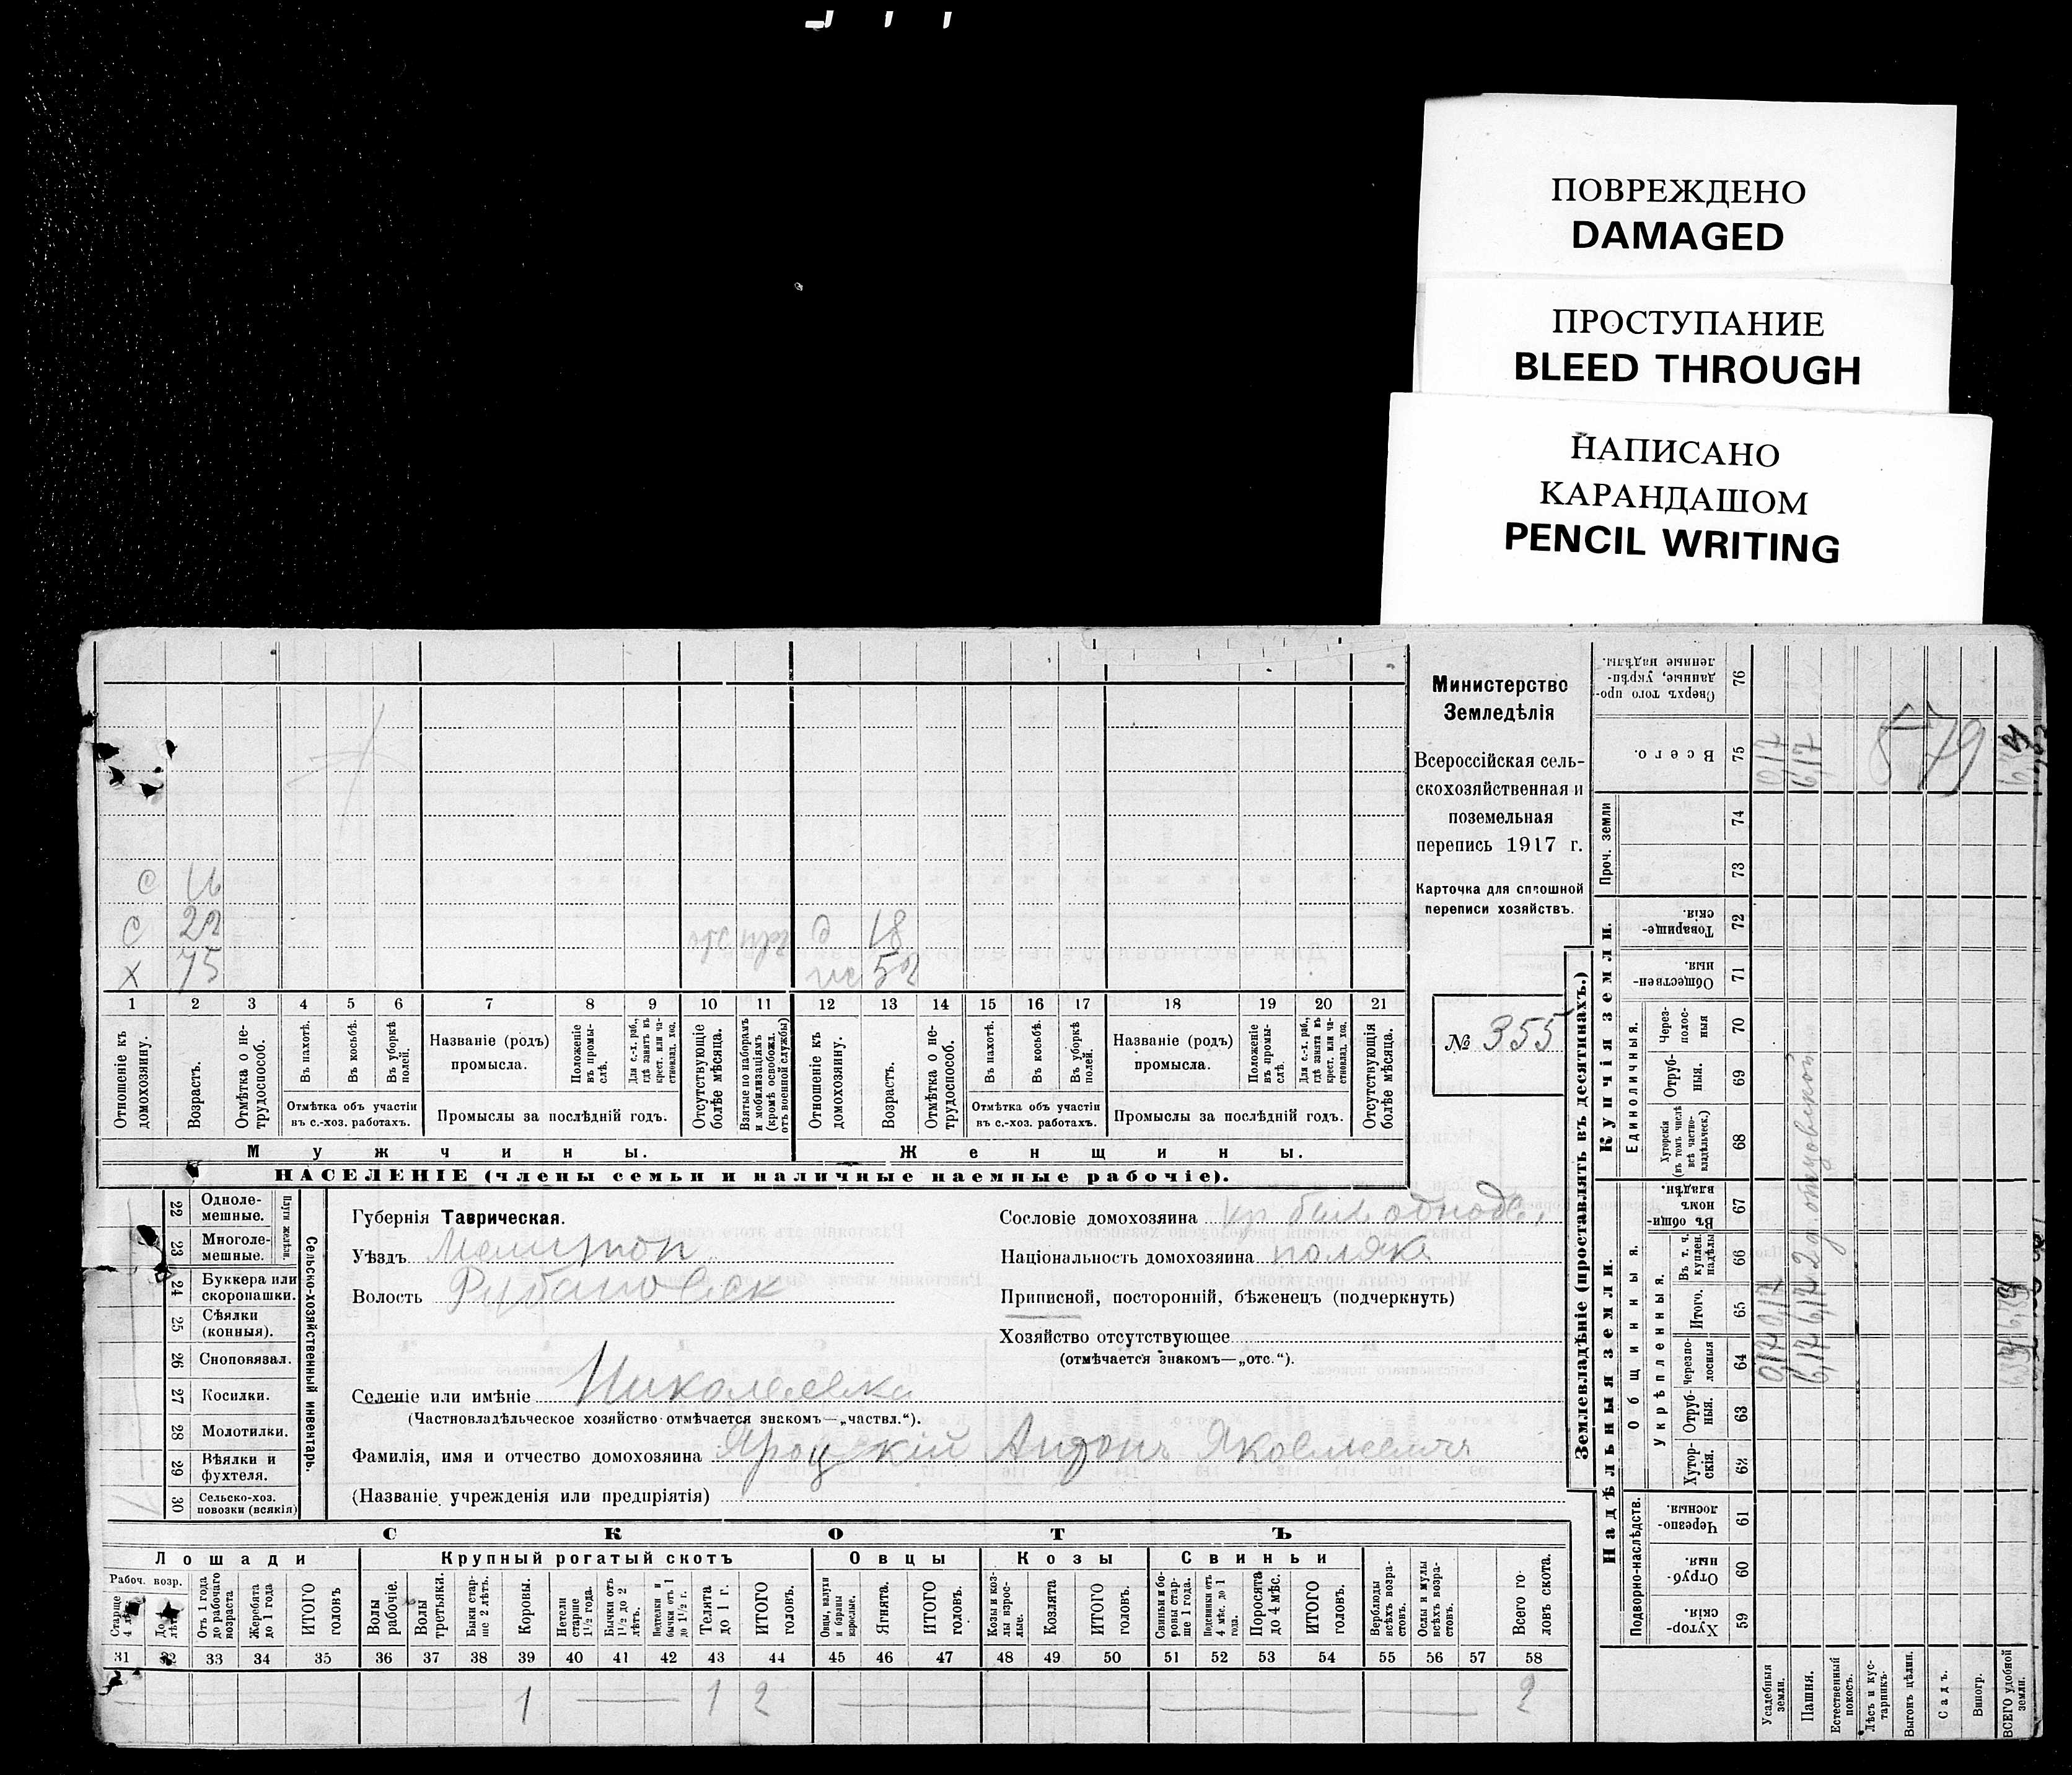 ПОВРЕЖДЕНО
DAMAGED
ПРОСТУПАНИЕ
BLEED THROUGH
НАПИСАНО
КАРАНДАШОМ
PENCIL WRITING
Министерство
Земледѣлія
Всероссійская сель-
скохозяйственная и
поземельная
перепись 1917 г.
Карточка для сплошной
переписи хозяйствъ.
№ 355
с 16
с 22 д 18
х 75 52
1 2 3 4 5 6 7 8 9 10 11 12 13 14 15 16 17 18 19 20 21
Отношеніе къ домохозяину.
Возрастъ.
Отмѣтка о не-трудоспособ.
Въ пахотѣ.
Въ косьбѣ.
Въ уборкѣ полей.
Отмѣтка объ участіи
въ с.-хоз. работахъ.
Названіе (родъ)
промысла.
Положеніе въ промы-слѣ.
Для с.-х. раб., гдѣ занятъ въ крест. или ча-стновлад. хоз.
Промыслы за послѣдній годъ.
Отсутствующіе болѣе мѣсяца.
Взятые по наборамъ и мобилизаціямъ (кромѣ освобожд. отъ военной службы)
Отношеніе къ домохозяину.
Возрастъ.
Отмѣтка о не-трудоспособ.
Въ пахотѣ.
Въ косьбѣ.
Въ уборкѣ полей.
Отмѣтка объ участіи
въ с.-хоз. работахъ.
Названіе (родъ)
промысла.
Положеніе въ промы-слѣ.
Для с.-х. раб., гдѣ занята въ крест. или ча-стновлад. хоз.
Промыслы за послѣдній годъ.
Отсутствующія болѣе мѣсяца.
Мужчины. Женщины.
НАСЕЛЕНІЕ (члены семьи и наличные наемные рабочіе).
22 Одноле-мешные.
23 Многоле-мешные.
Плуги желѣзн.
24 Буккера или скоропашки.
25 Сѣялки (конныя).
26 Сноповязал.
27 Косилки.
28 Молотилки.
29 Вѣялки и фухтеля.
30 Сельско-хоз. повозки (всякія)
Сельско-хозяйственный инвентарь.
Губернія Таврическая.
Уѣздъ Мелитоп
Волость Рубановск
Селеніе или имѣніе Николаевка
(Частновладѣльческое хозяйство отмѣчается знакомъ—„частвл.“).
Фамилія, имя и отчество домохозяина Яроцкій Антонъ Яковлевичъ
(Названіе учрежденія или предпріятія)
Сословіе домохозяина кр. быв. однодв.
Національность домохозяина поляка
Приписной, посторонній, бѣженец (подчеркнуть)
Хозяйство отсутствующее
(отмѣчается знакомъ—„отс.“).
СКОТЪ
Лошади Крупный рогатый скотъ Овцы Козы Свиньи
Рабоч. возр.
Старше 4 лѣтъ
Отъ 1 года до рабочаго возраста
Жеребята до 1 года
ИТОГО головъ
Волы рабочіе.
Волы третьяки.
Быки стар-ше 2 лѣтъ.
Коровы.
Нетели старше 1½ года.
Бычки отъ 1½ до 2 лѣтъ.
Нетелки и бычки отъ 1 до 1½ г.
Телята до 1 г.
ИТОГО головъ.
Овцы, валухи и бараны взрослые.
Ягнята.
ИТОГО головъ.
Козы и коз-лы взрос-лые.
Козлята
ИТОГО головъ.
Свиньи и бо-ровы стар-ше 1 года.
Подсвинки отъ 4 мѣс. до 1 года.
Поросята до 4 мѣс.
ИТОГО головъ.
Верблюды всѣхъ возра-стовъ.
Ослы и мулы всѣхъ возра-стовъ.
Всего го-ловъ скота.
31 32 33 34 35 36 37 38 39 40 41 42 43 44 45 46 47 48 49 50 51 52 53 54 55 56 57 58
1 1 2 2
Землевладѣніе (проставлять въ десятинахъ.)
Надѣльныя земли. Купчія земли.
Подворно-наслѣдств.
Общинныя.
Укрѣпленныя.
Единоличныя.
Проч. земли
59 Хутор-скія
60 Отруб-ныя.
61 Черезпо-лосныя
62 Хутор-скія.
63 Отруб-ныя.
64 Черезпо-лосныя
65 Итого.
66 Въ т. ч. куплен. надѣлы
67 Въ общи-номъ владѣн.
68 Хуторскія (въ томъ числѣ всѣ частно-владѣльческ.)
69 Отруб-ныя.
70 Через-полос-ныя
71 Обществен-ныя.
72 Товарище-скія.
73
74
75 Всего.
76 Сверхъ того про-данные, укрѣп-ленные надѣлы.
Усадебныя земли. 0,17 0,17 0,17
Пашня. 6,17 6,17 6,17
Естественный покосъ.
Лѣсъ и кус-тарникъ.
Выгонъ цѣлин.
Садъ.
Виногр.
ВСЕГО удобной земли.
579